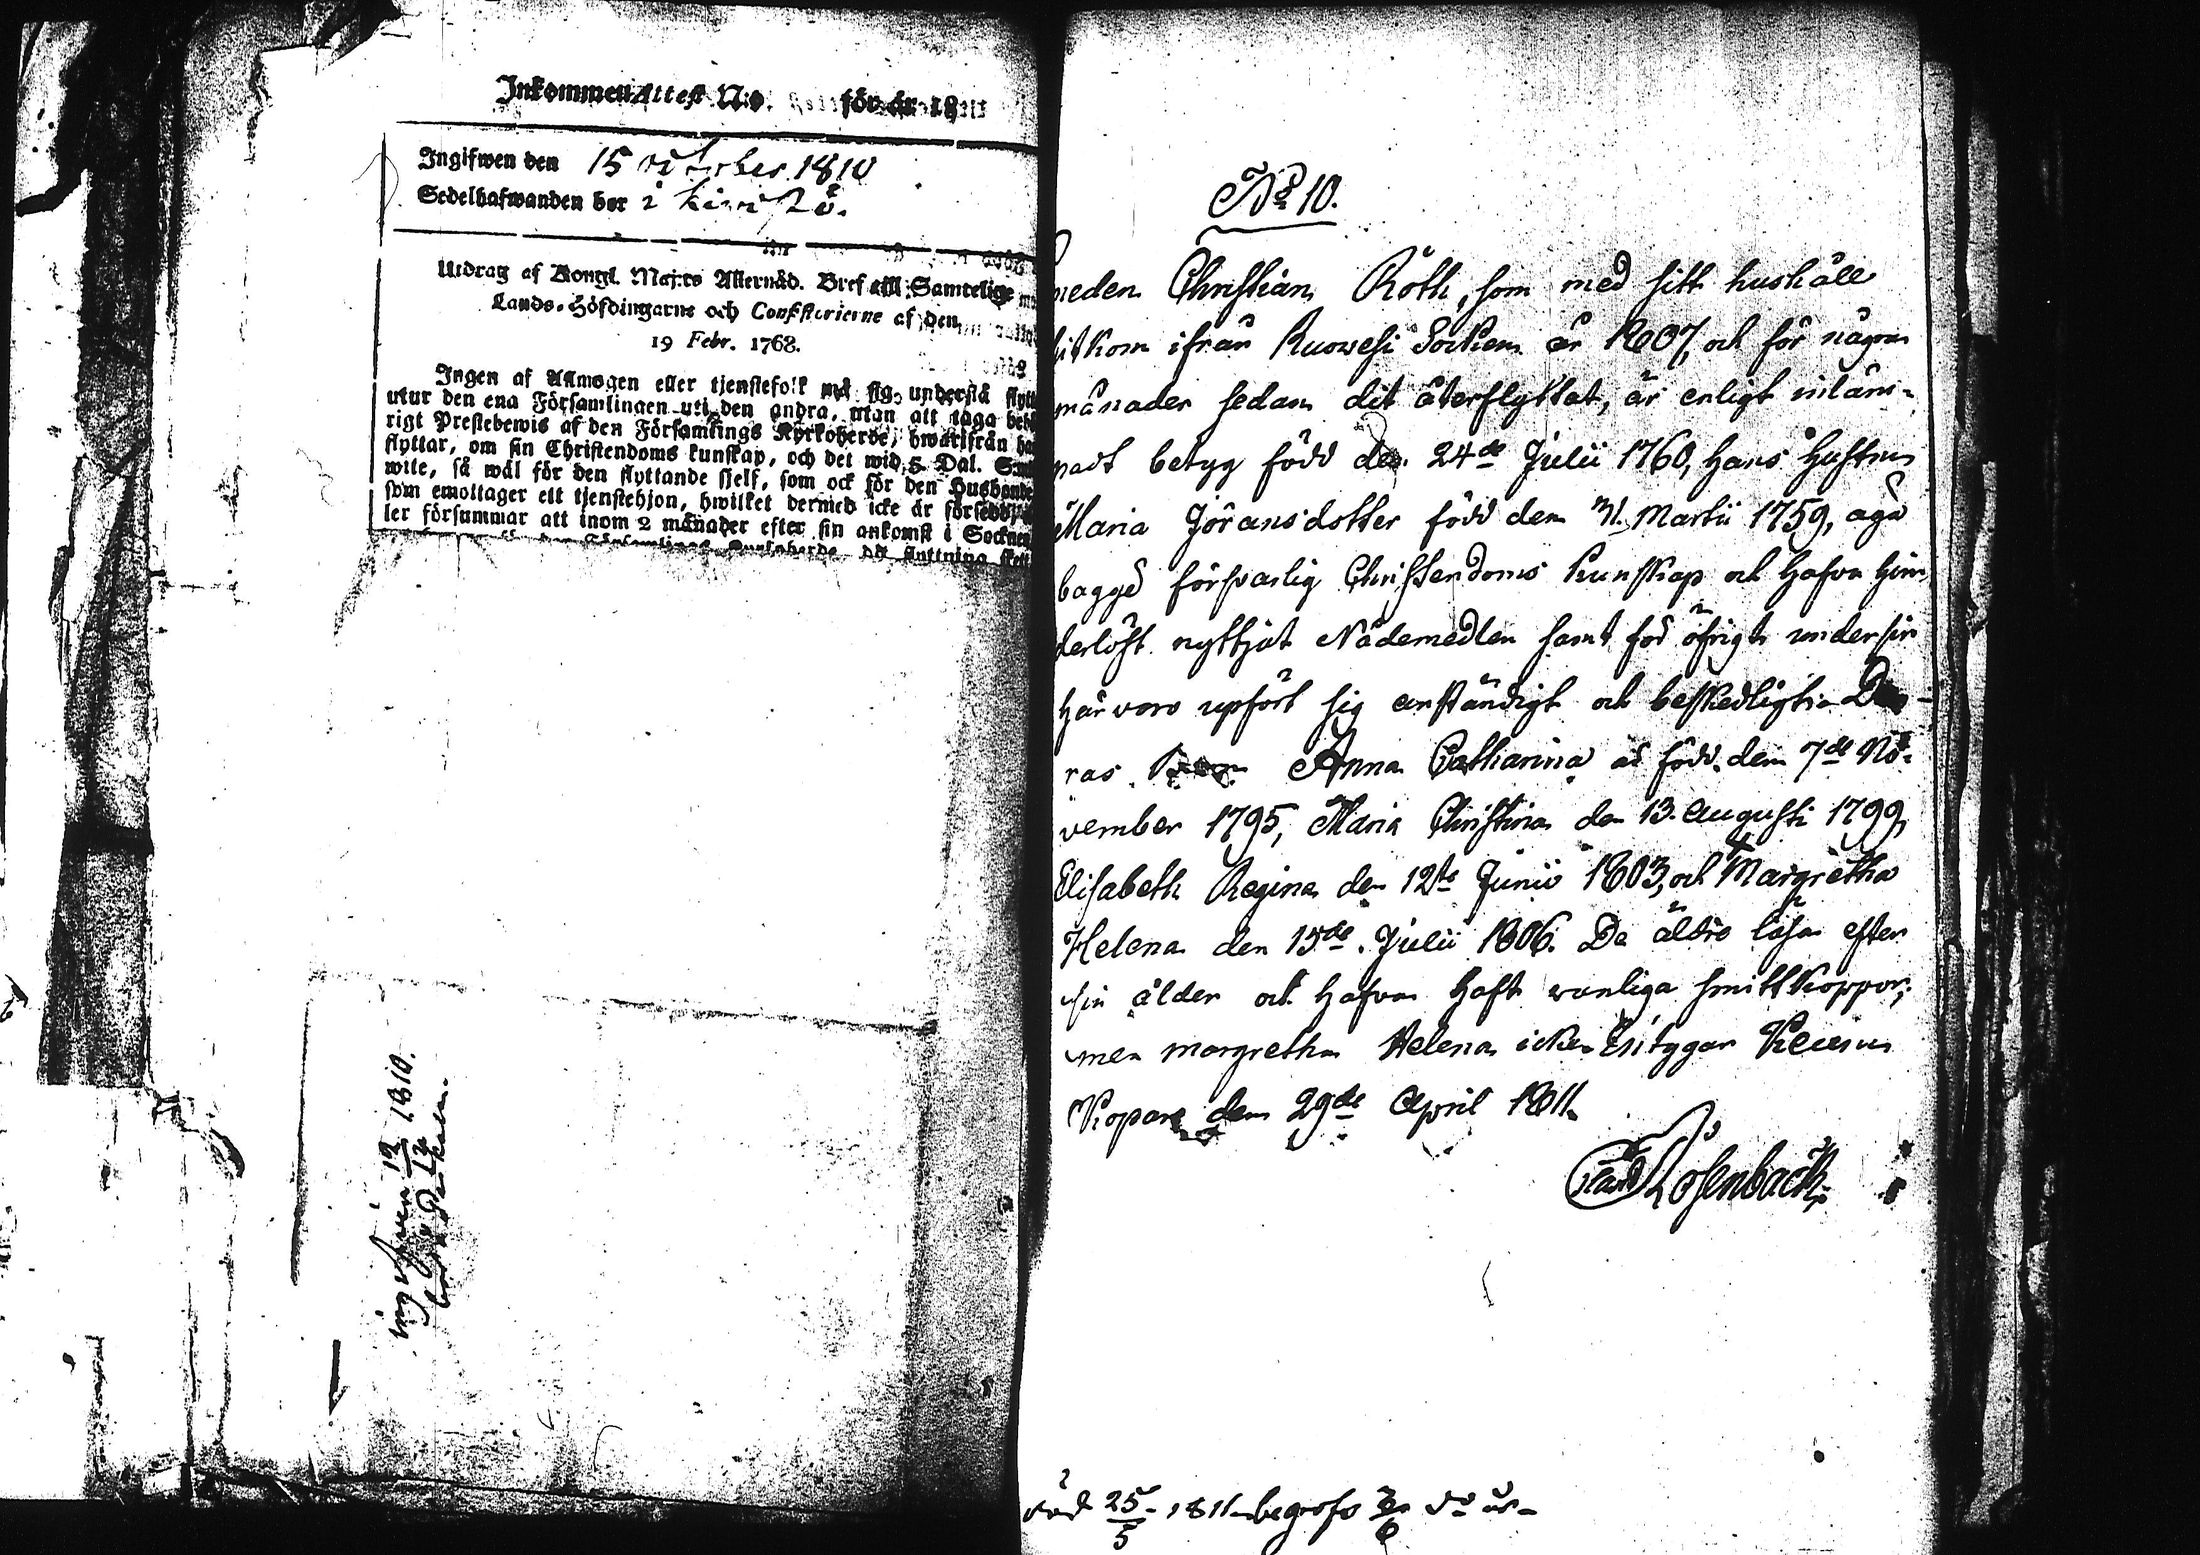 Inkommen Attest No. för år 18
Ingifwen den 15 october 1810
Sedelhafwanden bor i
Utdrag af Kongl. Maj:ts Allernåd. Bref till Samtelige
Lands-Höfdingarne och Consistorierne af den
19 Febr. 1768.
Ingen af Allmogen eller tjenstefolk må sig understå flytt
utur den ena Församlingen uti den andra, utan att taga behö
rigt Prestebewis af den Församlings Kyrkoherde, hwarifrån ha
flyttar, om sin Christendoms kunskap, och det wid 5 Dal. S
wite, så wäl för den flyttande sjelf, som ock för den Husbonde
som emottager ett tjenstehjon, hwilket dermed icke är försedd,
ler försummar att inom 2 månader efter sin ankomst i Socknen
flyttning
ingifven 12/12 1810.
No 10.
meden Christian Röth, som med sitt hushåll
hitkom ifrån Ruowesi Socken år 1807, och för några
månader sedan dit återflyttat, är enligt inläm-
nadt betyg född den 24de Julii 1760, hans Hustru
Maria Jöransdotter född den 31. Martii 1759, äga
bägge försvarlig Christendoms kunskap och hafva hin
derlöst nyttjat Nådemedlen samt för öfrigt under sin
härvaro upfört sig anständigt och beskedligt. De-
ras Anna Catharina är född den 7de No-
vember 1795, Maria Christina den 13. Augusti 1799,
Elisabeth Regina den 12te Junii 1803, och Margretha
Helena den 15de Julii 1806. De äldre läsa efter
sin ålder och hafva haft vanliga smittkoppor;
men Margretha Helena icke. Betygar
Kopare den 29de April 1811.
Rosenback
död 25/5 1811 begrofs do år